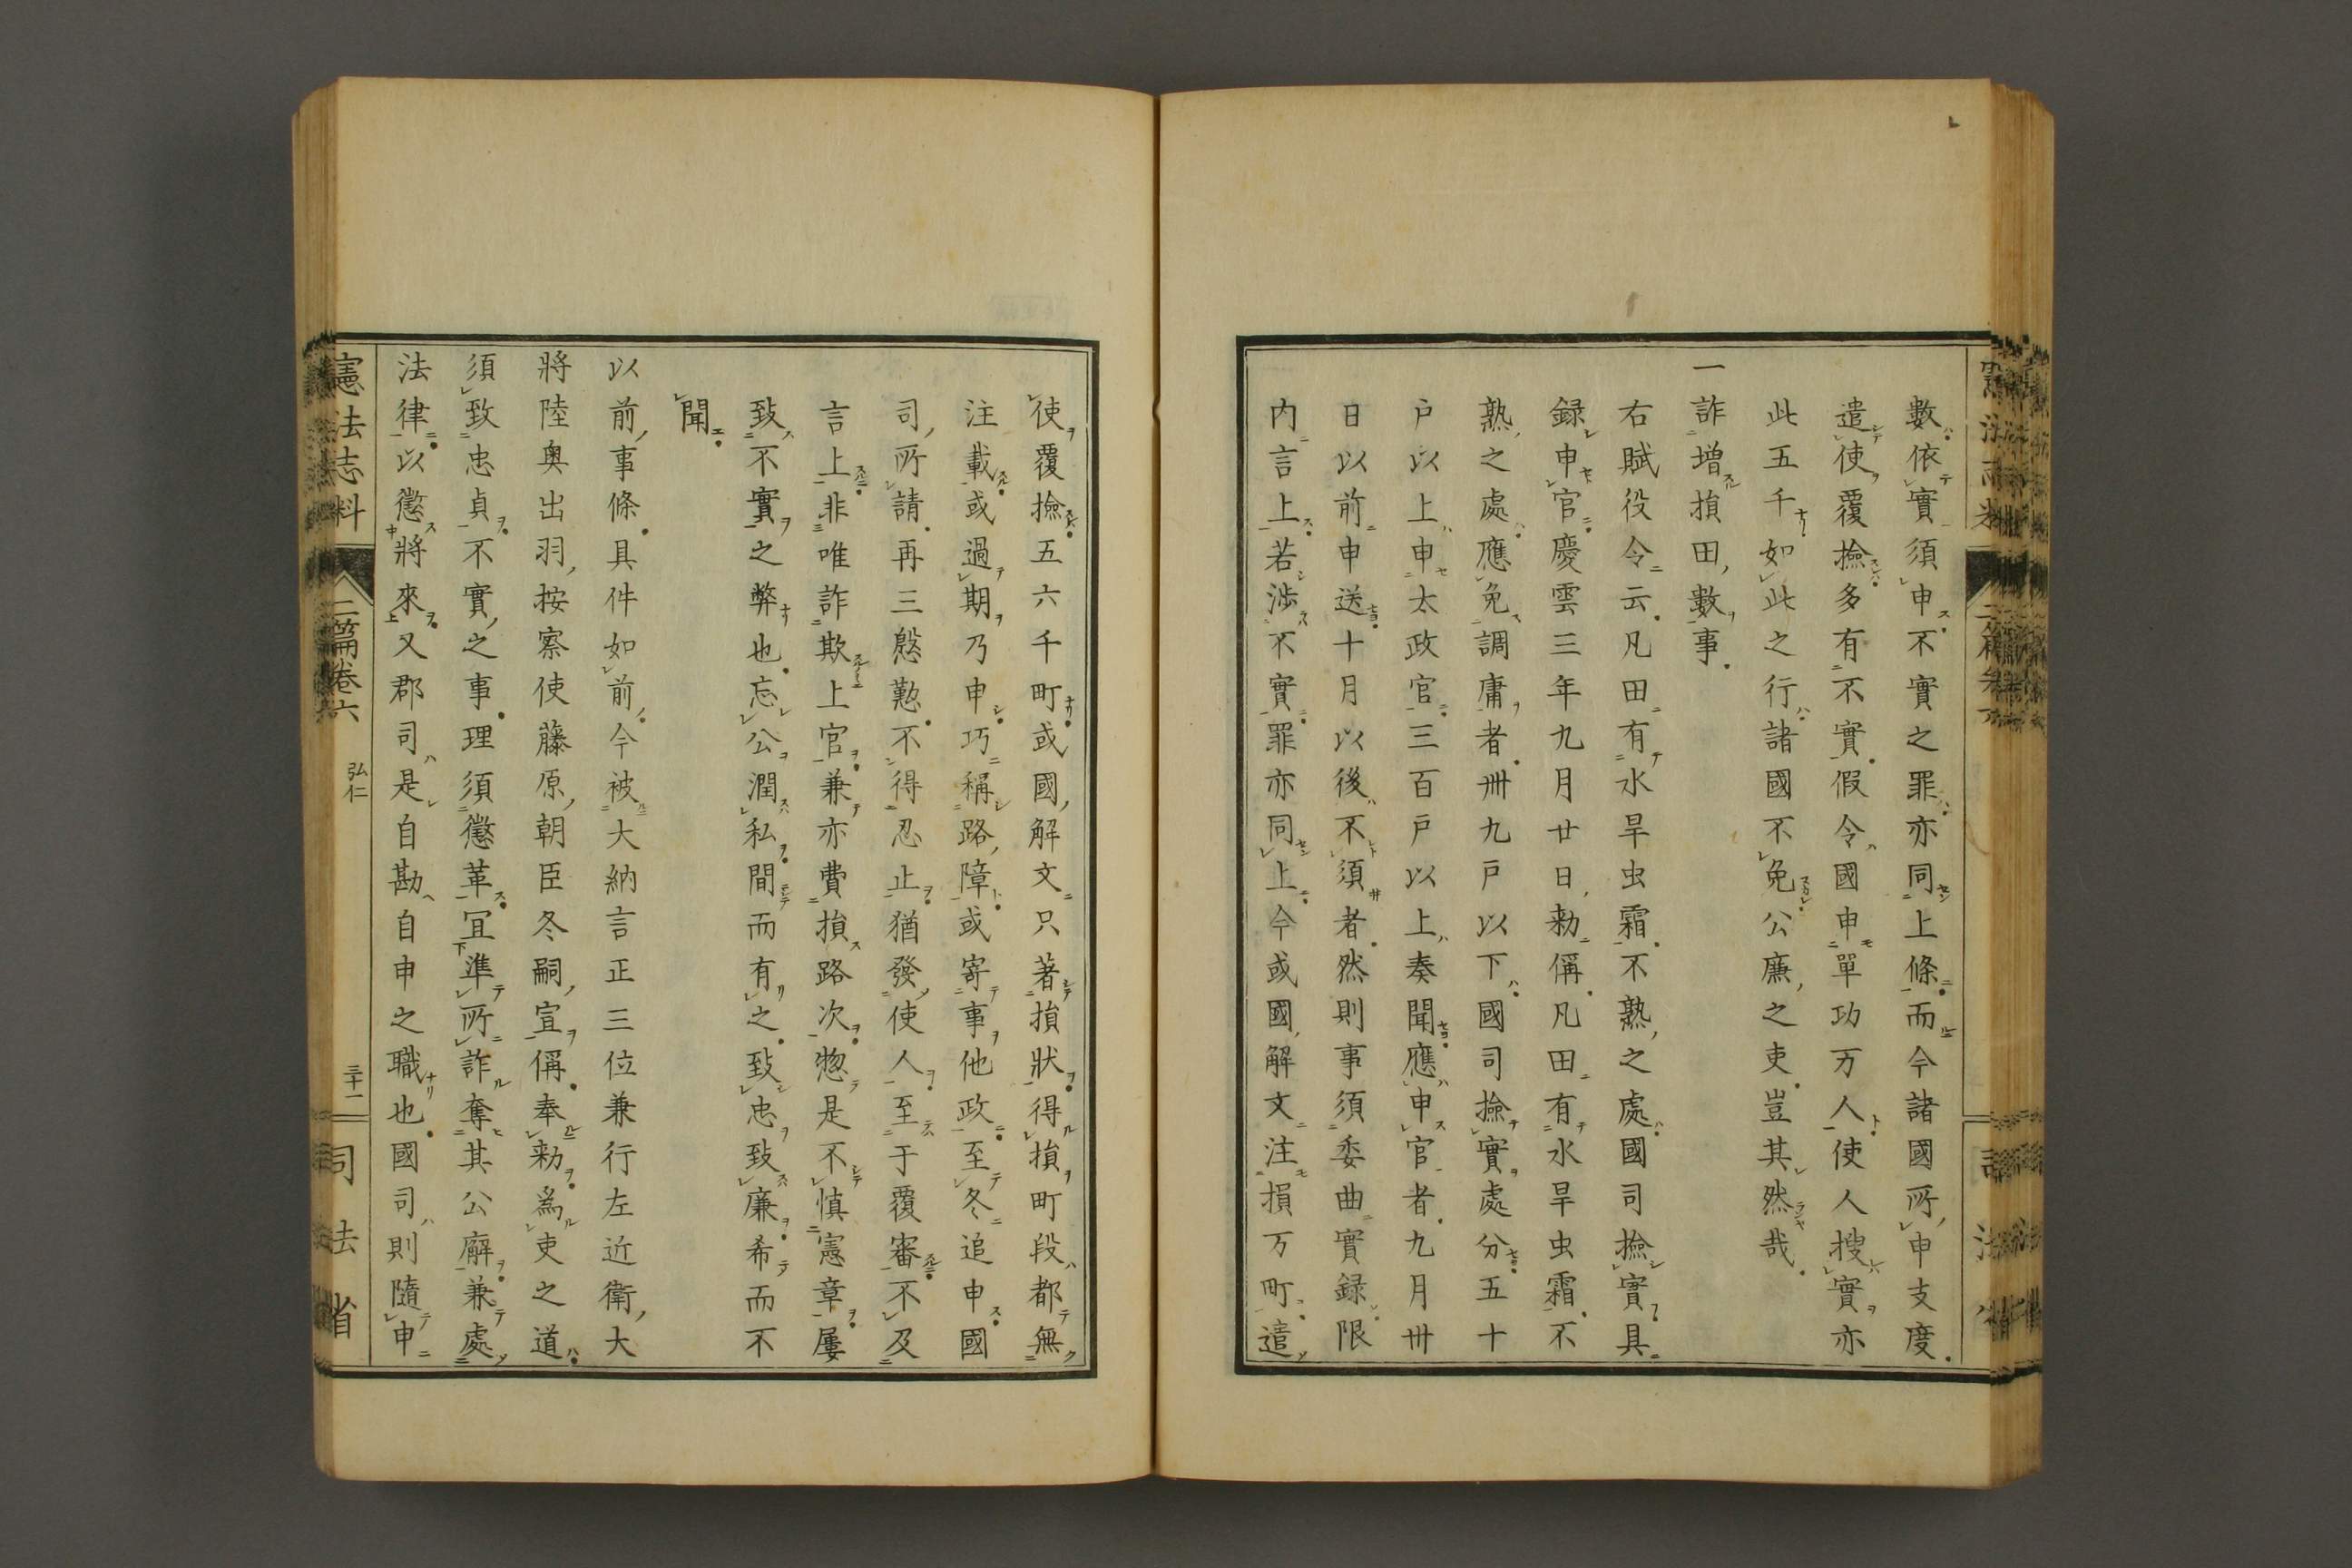 數依實須申不實之罪亦同上條而今諸國所申支度
遣使覆撿多有不實假令國申單功万人使人搜實亦
此五千如此之行諸國不免公廉之吏豈其然哉
一詐增損田數事
右賦役令云凡田有水旱虫霜不熟之處國司撿實具
録申官慶雲三年九月廿日勅偁凡田有水旱虫霜不
熟之處應免調庸者卌九戸以下國司撿實處分五十
戸以上申太政官三百戸以上奏聞應申官者九月卅
日以前申送十月以後不須者然則事須委曲實録限
内言上若涉不實罪亦同上今或國解文注損万町遣
使覆撿五六千町或國解文只著損狀得損町段都無
注載或過期乃申巧稱路障或寄事他政至冬追申國
司所請再三慇懃不得忍止猶發使人至于覆審不及
言上非唯詐欺上官兼亦費損路次惣是不愼憲章屢
致不實之弊也忘公潤私間而有之致忠致廉希而不
聞
以前事條具件如前今被大納言正三位兼行左近衛大
將陸奥出羽按察使藤原朝臣冬嗣宣偁奉勅爲吏之道
須致忠貞不實之事理須懲革宜準所詐奪其公廨兼處
法律以懲將來又郡司是自勘自申之職也國司則隨申
憲法志料 二篇卷六 弘仁 三十一 司法省